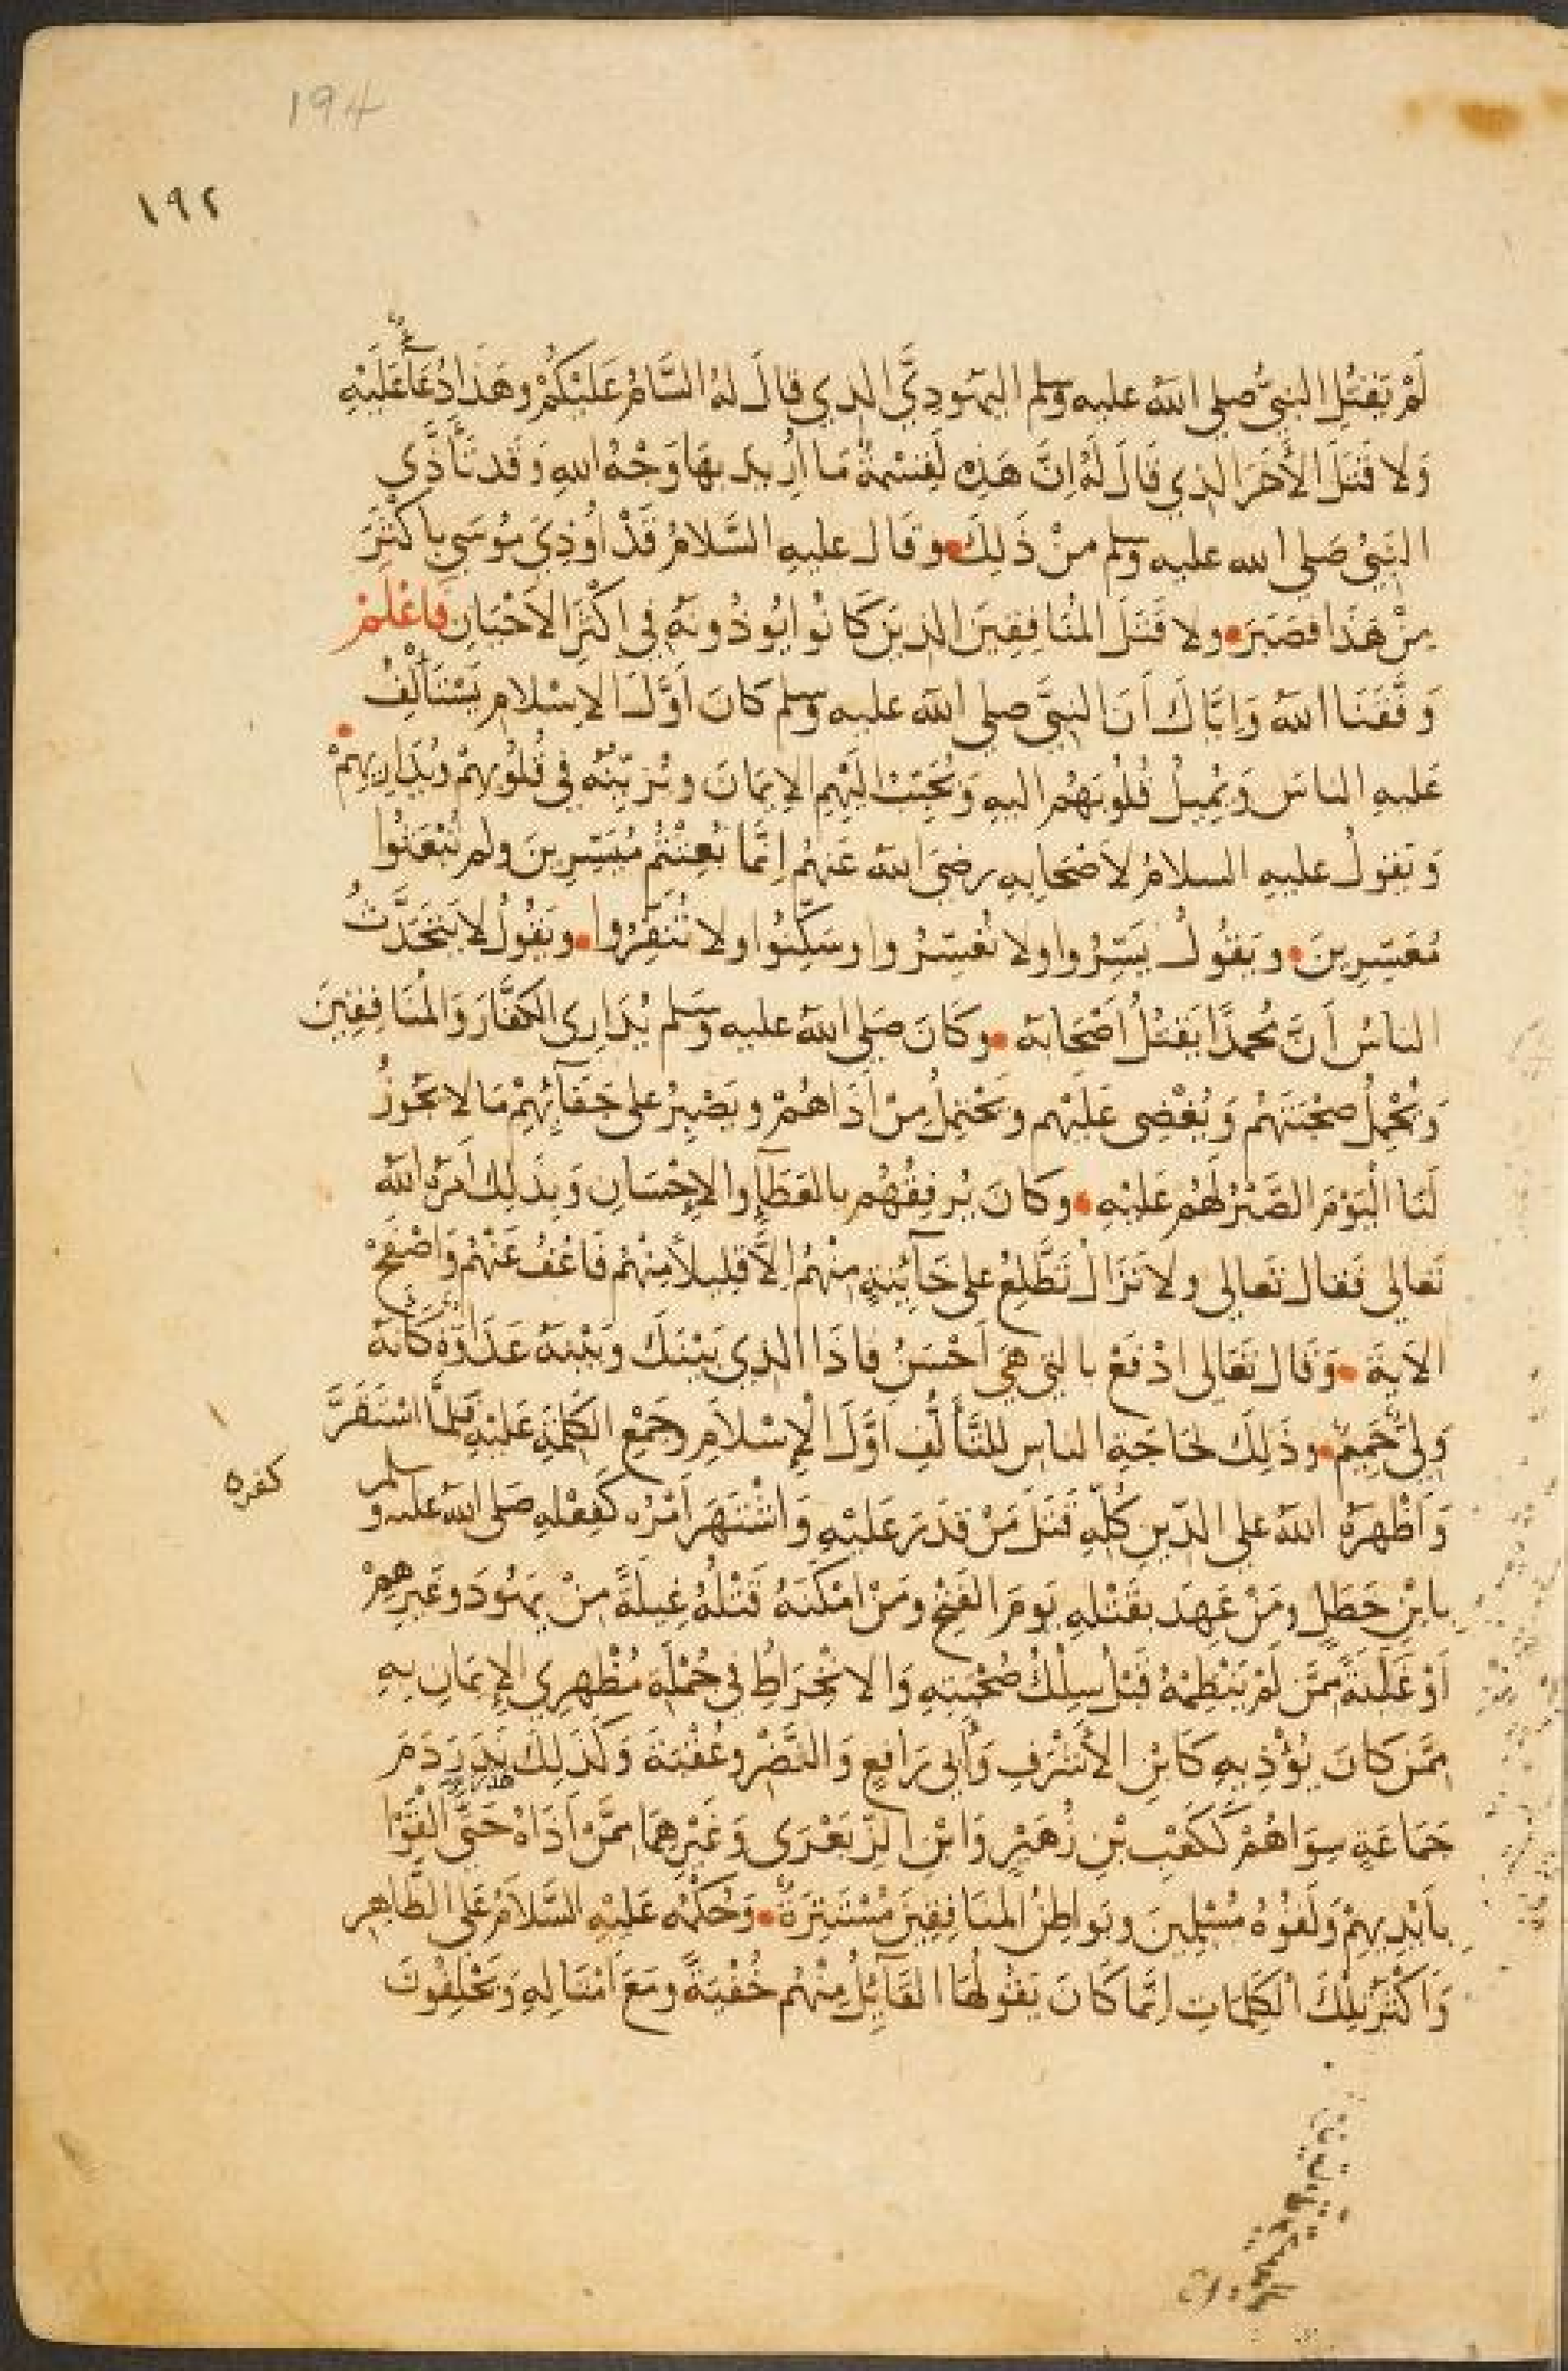 194
١٩٢
لَمْ يَقْتُلِ النبيُّ صلى اللهُ عليه وسلم اليَهُودِيَّ الذِي قالَ لهُ السَّامُ عَلَيْكُمْ وهَذَا دُعَآءٌ عَلَيْهِ
وَلا قَتَلَ الأَخَرَ الذِي قَالَ لَهُ إِنَّ هَذِهِ لَقِسْمَةٌ مَا أُرِيدَ بهَا وَجْهُ اللهِ وَقَد تَأَذَّى
النبيُّ صَلى الله عليه وسلم مِنْ ذَلِكَ وقَال عليهِ السَّلامُ قَدْ أُوذِيَ مُوسَى بِأكْثَرَ
مِنْ هَذَا فصَبَرَ ولا قَتَلَ المُنَافِقِينَ الذِينَ كَانُوا يُؤذُونَهُ فِي اكْثَرِ الأَحْيَانِ فَاعْلَمْ
وَفَّقَنَا اللهُ وَإيَّاكَ أَنَ النبيَّ صلى اللهُ عليه وسلم كَانَ أَوَّلَ الإسْلامِ يَسْتَأْلِفُ
عَليهِ الناسَ وَيُمِيلُ قُلُوبَهُم اليهِ وَيُحَبِّبُ الَيْهِم الإيمَانَ ويُزَيِّنُهُ فِي قُلُوبِهِمْ ويُدَارِيهِمْ
وَيقولُ عليهِ السلامُ لأَصْحَابِهِ رضيَ اللهُ عَنهُم إِنَّمَا بُعِثْتُم مُيَسِّرِينَ ولم تُبْعَثُوا
مُعَسِّرِينَ ويَقُولُ يَسِّرُوا ولا تُعَسِّرُوا وسَكِّنُوا ولا تُنَفِّرُوا ويَقُولُ لا يَتَحَدَّثُ
الناسُ أَنَّ مُحمدًا يَقْتُلُ أصْحَابَهُ وكَانَ صَلى اللهُ عليه وسَلم يُدَارِى الكفَّارَ وَالمُنَافِقِينَ
وَيُجْمِلُ صُحْبَتَهُمْ وَيُغْضِى عَلَيْهم ويَحْتَمِلُ مِنْ أَذَاهُمْ ويَصْبِرُ على جَفَآئِهِمْ مَا لا يَجُوزُ
لَنَا الْيَوْمَ الصَّبْرُ لَهُم عَلَيْهِ وكانَ يُرفِقُهُم بالعَطَآءِ والإحْسَانِ وَبِذَلِكَ أَمَرَهُ اللهُ
تَعَالى فَقال تَعَالى ولا تَزَالُ تَطَّلِعُ على خَآئِنَةٍ مِنْهُم إلاَّ قلِيلاً مِنْهُم فَاعْفُ عَنْهُمْ وَاصْفَحْ
الآيَةَ وَقَال تَعَالى ادْفَعْ بالتِي هيَ أَحْسَنُ فاذَا الذِي بَيْنَكَ وبَيْنَهُ عَدَاوَةٌ كَأَنَّهُ
وَلِىٌّ حَمِيمٌ وذَلِكَ لحَاجَةِ الناسِ للتَّأَلُّفِ أوَّلَ الإِسْلاَمِ وجَمْعِ الكَلِمَةِ عَلَيْهِ فَلمَّا اسْتَقَرَّ
وَأَظْهَرَهُ اللهُ على الدّينِ كُلِّهِ قَتَلَ مَنْ قدَرَ عَليْهِ وَاشْتَهَرَ أَمْرُه كَفِعْلِهِ صَلى اللهُ عليه وسلم
كفره
بابْنِ خَطَلٍ ومَنْ عَهِدَ بقَتْلِهِ يَومَ الفَتْحِ ومَنْ امْكَنَهُ قَتْلُهُ غِيلَةً مِنْ يَهُودَ وغَيرِهِمْ
أوْ غَلَبَةً مِمَّن لَمْ يَنْظِمْهُ قَبْلُ سِلْكُ صُحْبَتِهِ وَالانْخِرَاطُ فِي جُمْلَةِ مُظْهِرِي الإيمَانِ بِهِ
مِمَّن كانَ يُؤْذِيهِ كَابْنِ الأَشْرَفِ وَأبِى رَافِعٍ وَالنَّضْرِ وعُقْبَةَ وَكَذلِكَ نَدَرَ دَمَ
هدر
جَمَاعَةٍ سِوَاهُمْ كَكَعْبِ بْنِ زُهَيْرٍ وَابْنِ الزِّبَعْرَى وَغَيْرِهِمَا مِمَّنْ أذَاهُ حَتَّى أَلْقَوْا
بأَيْدِيهِمْ وَلَقُوْهُ مُسْلِمِينَ وبَواطِنُ المنَافِقِينَ مُسْتَتِرَةٌ وَحُكْمُهُ عَلَيْهِ السَّلاَمُ عَلى الظَّاهِرِ
وَأَكْثَرُ تِلْكَ الكَلِمَاتِ إنَّمَا كَانَ يَقُولُهَا القَآئِلُ مِنْهُم خُفْيَةً ومَعَ امْثَالِهِ وَيَحْلِفُونَ